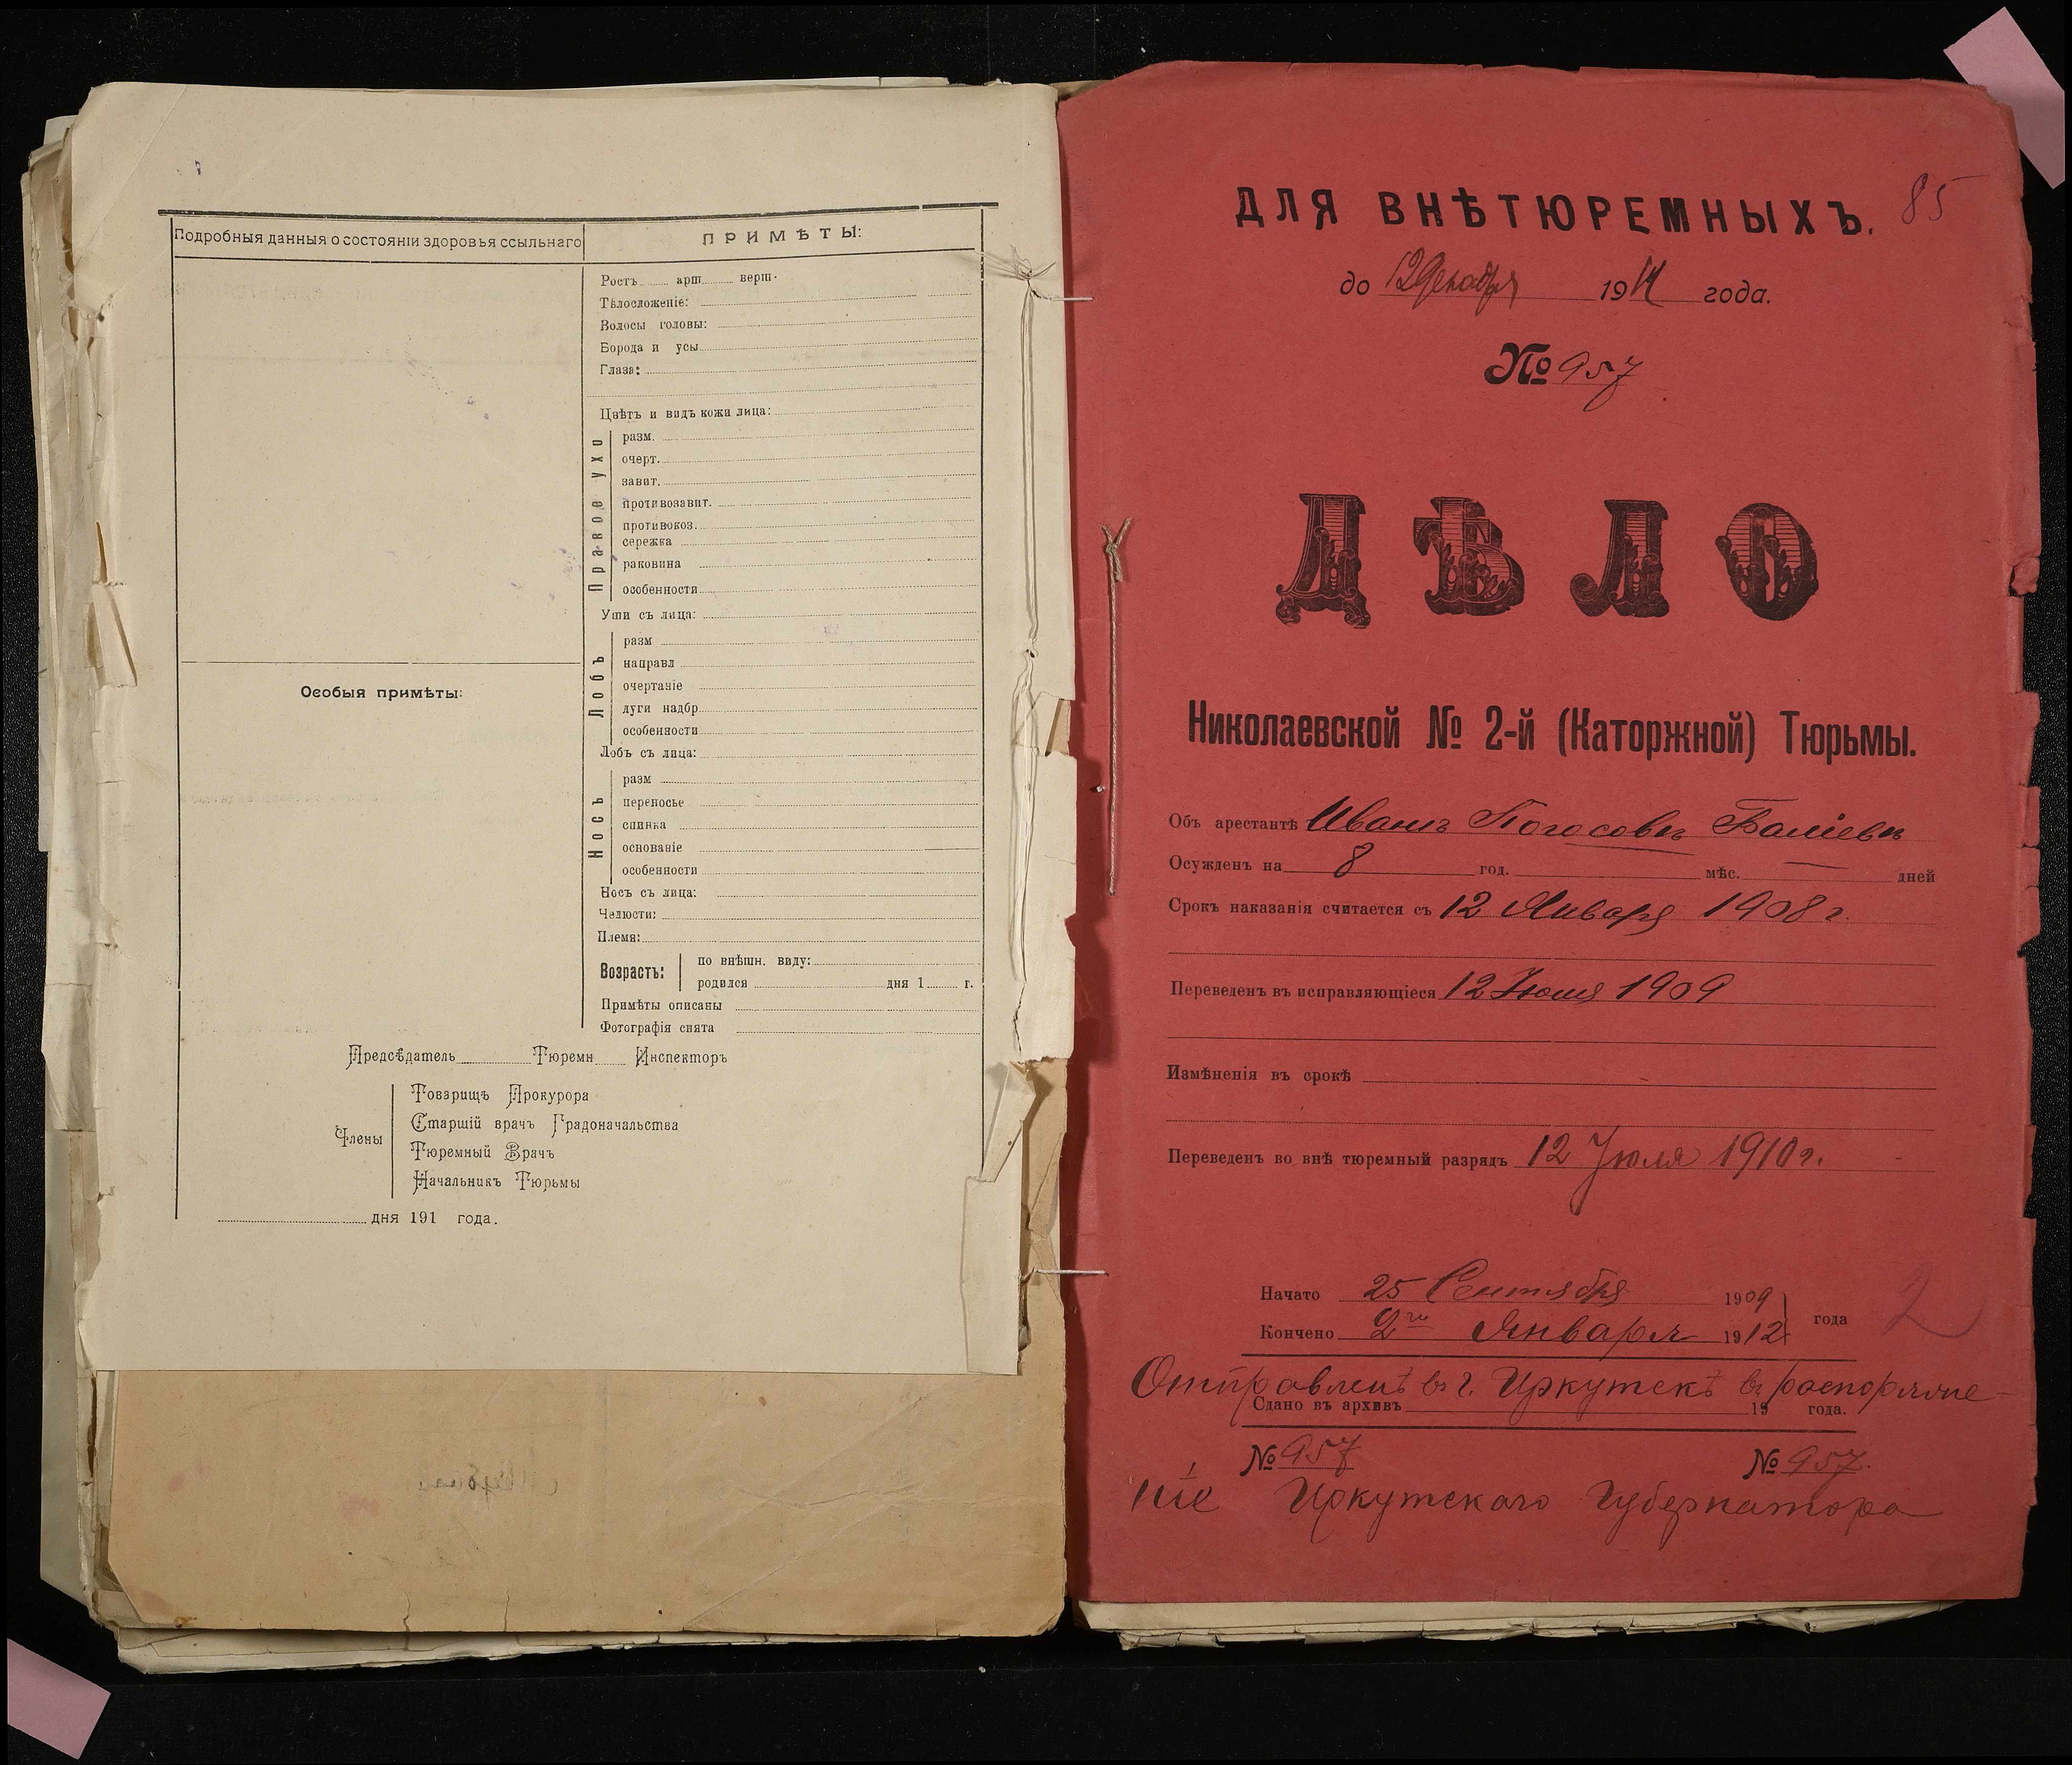 Подробныя данныя о состояніи здоровья ссыльнаго
ПРИМѢТЫ:
Ростъ арш. верш.
Тѣлосложеніе:
Волосы головы:
Борода и усы
Глаза:
Цвѣтъ и видъ кожи лица:
Правое ухо
разм.
очерт.
завит.
противозавит.
противокоз.
сережка
раковина
особенности
Уши съ лица:
Лобъ
разм
направл
очертаніе
дуги надбр.
особенности
Лобъ съ лица:
Носъ
разм
переносье
спинка
основаніе
особенности
Носъ съ лица:
Челюсти:
Племя:
Возрастъ:
по внѣшн. виду:
родился дня 1 г.
Примѣты описаны
Фотографія снята
Особыя примѣты:
Предсѣдатель Тюремн Инспекторъ
Члены
Товарищъ Прокурора
Старшій врачъ Градоначальства
Тюремный Врачъ
Начальникъ Тюрьмы
дня 191 года.
ДЛЯ ВНѢТЮРЕМНЫХЪ. 85
до 12 Декабря 1911 года.
№ 957
ДѢЛО
Николаевской № 2-й (Каторжной) Тюрьмы.
Объ арестантѣ Иванъ Погосовъ Баліевъ
Осужденъ на 8 год. мѣс. дней
Срокъ наказанія считается съ 12 Января 1908 г.
Переведенъ въ исправляющіеся 12 1909
Измѣненія въ срокѣ
Переведенъ во внѣ тюремный разрядъ 12 Іюля 1910 г.
Начато 25 Сентября 1909
Кончено 2го Января 1912 года
2
Отправленъ въ г. Иркутскъ въ распоряже-
Сдано въ архивъ 19 года.
№ 957 № 957.
ніе Иркутскаго Губернатора